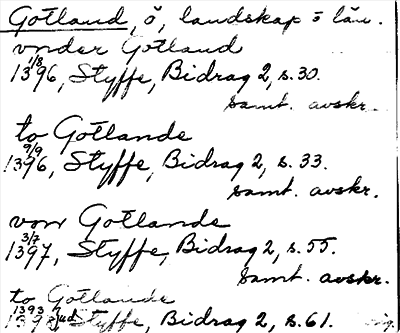 Gotland, ö, landskap o län.
vnder Gotland
1396 1/8, Styffe, Bidrag 2, s. 30.
samt. avskr.
to Gotlande
1396 9/9, Styffe, Bidrag 2, s. 33.
samt. avskr.
von Gotlande
1397 3/7, Styffe, Bidrag 2, s. 55.
samt. avskr.
to Gotlande
Styffe, Bidrag 2, s. 61.